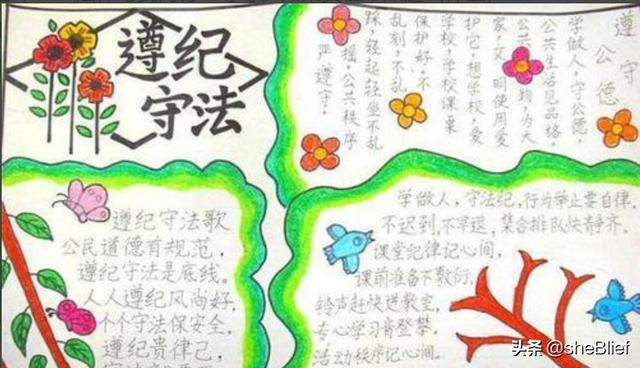 遵纪
守法
遵守公德
学做人，守公德，
公共生活见品格。
公共财物，为大
家，文明使用爱
护它，想学校，爱
学校，学校课桌
保护好。不
乱刻，不乱
踩，轻起轻坐不乱
摇。公共秩序
严遵守。
遵纪守法歌
公民道德有规范，
遵纪守法是底线。
人人遵纪风尚好，
个个守法保安全。
遵纪贵律己，
学做人，守法纪，行为举止要自律，
不迟到，不早退，集合排队快静齐。
课堂纪律记心间，
课前准备不敷衍，
铃声赶快进教室，
专心学习肯登攀。
活动秩序记心间。
头条 @sheBlief